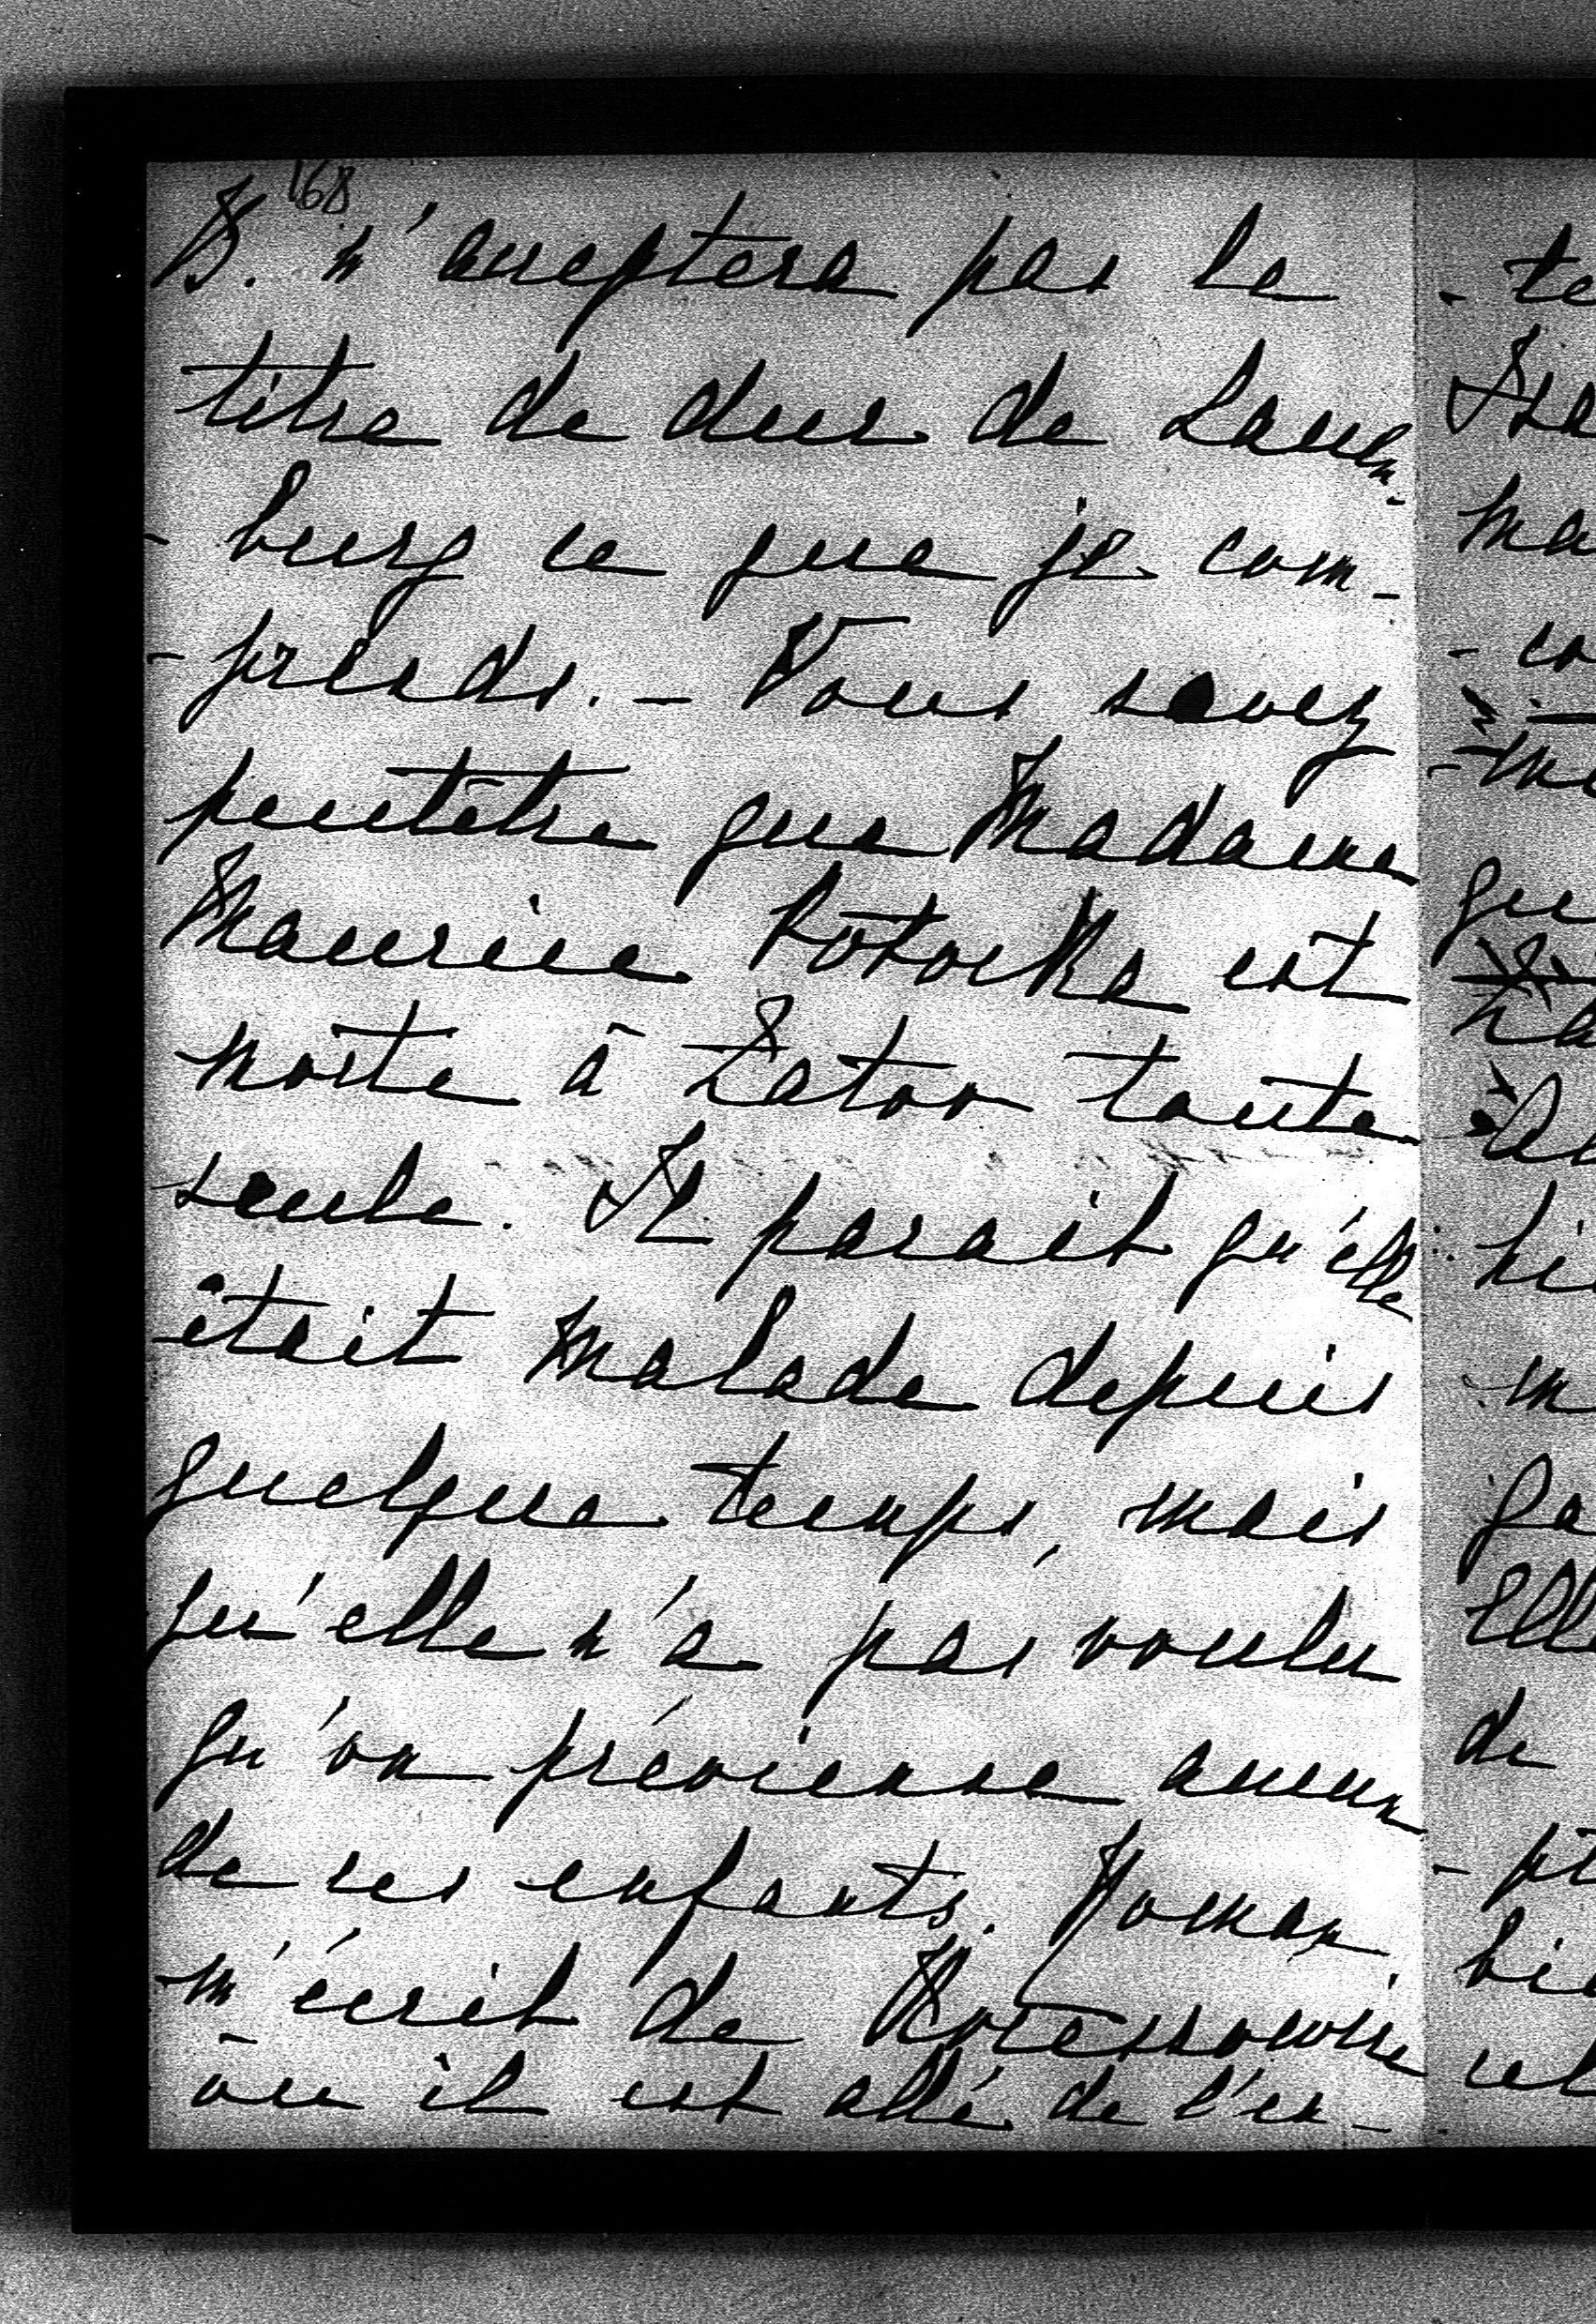 168
B. n'acceptera pas le
titre de duc de Lauen-
-burg ce que je com-
-prends. — Vous savez
peutêtre que Madame
Maurice Potocka est
morte à Zator toute
seule. Il parait qu'elle
était malade depuis
quelque temps, mais
qu'elle n'a pas voulu
qu'on prévienne aucun
de ses enfants. Roman
m'écrit de
où il est allé de l'en-